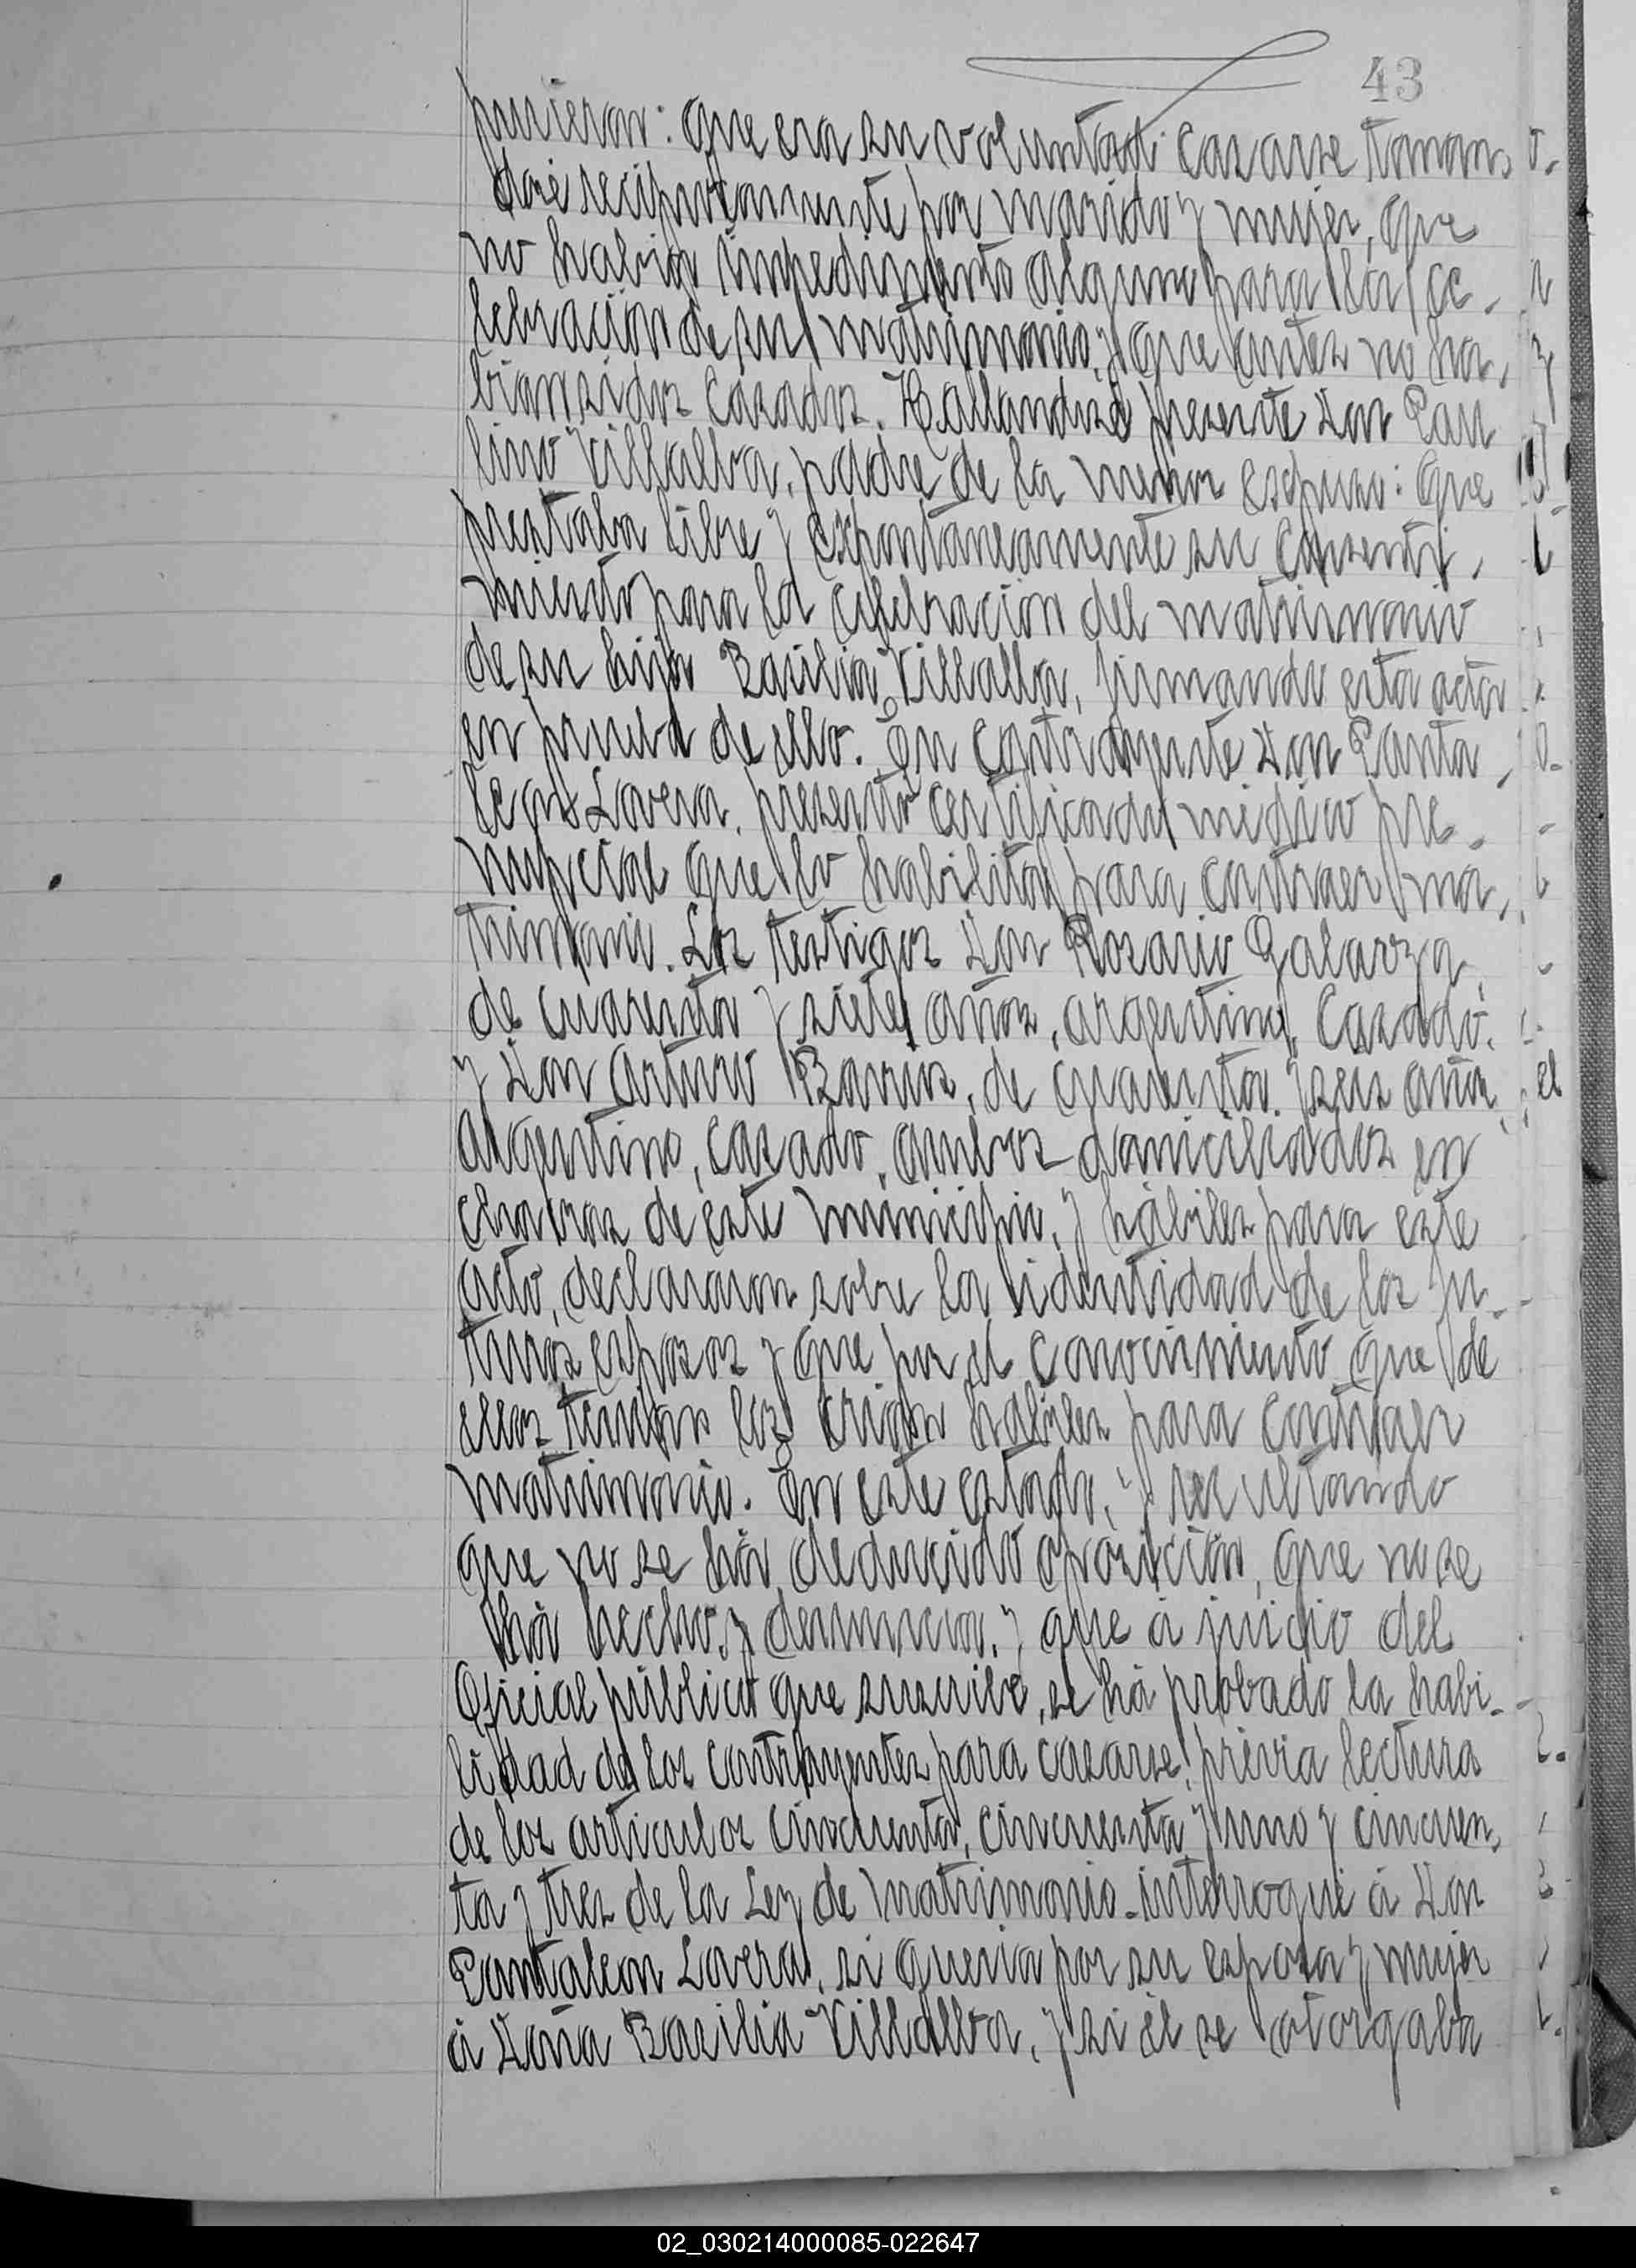 43
pusieron: Que era su voluntad casarse toman-
dose reciprocamente por marido y mujer, que
no habia impedimento alguno para la ce-
lebración de su matrimonio, y que antes no ha-
bian sidos casados. Hallandose presente Don Pau
lino Villalba, padre de la menor expuso: Que
prestaba libre y expontaneamente su consenti-
miento para la celebración del matrimonio
de su hija Basilia Villalba, firmando esta acta
en prueba de ello. En contrayente Don Panta-
leon Lovera, presentó certificado médico pre-
nupcial que lo habilita para contraer ma-
trimonio. Los testigos Don Rosario Galarza,
de cuarenta y siete años, argentino, casado.
y Don Arturo Barrios, de cuarenta y seis años
argentino, casado, ambos domiciliados en
chacras de este municipio, y hábiles para este
acto, declararon sobre la identidad de los fu-
turos esposos y que por el conocimiento que de
ellos tenian los creían habiles para contraer
matrimonio. En este estado, y resultando
que no se há deducido oposición, que no se
há hecho denuncia, y que á juicio del
Oficial público que suscribe, se há probado la habi-
lidad de los contrayentes para casarse, prévia lectura
de los articulos cincuenta, cincuenta y uno y cincuen-
ta y tres de la Ley de Matrimonio-interrogué á Don
Pantaleon Lovera, si queria por su esposa y mujer
á Doña Basilia Villalba, y si él se otorgaba
02_030214000085-022647